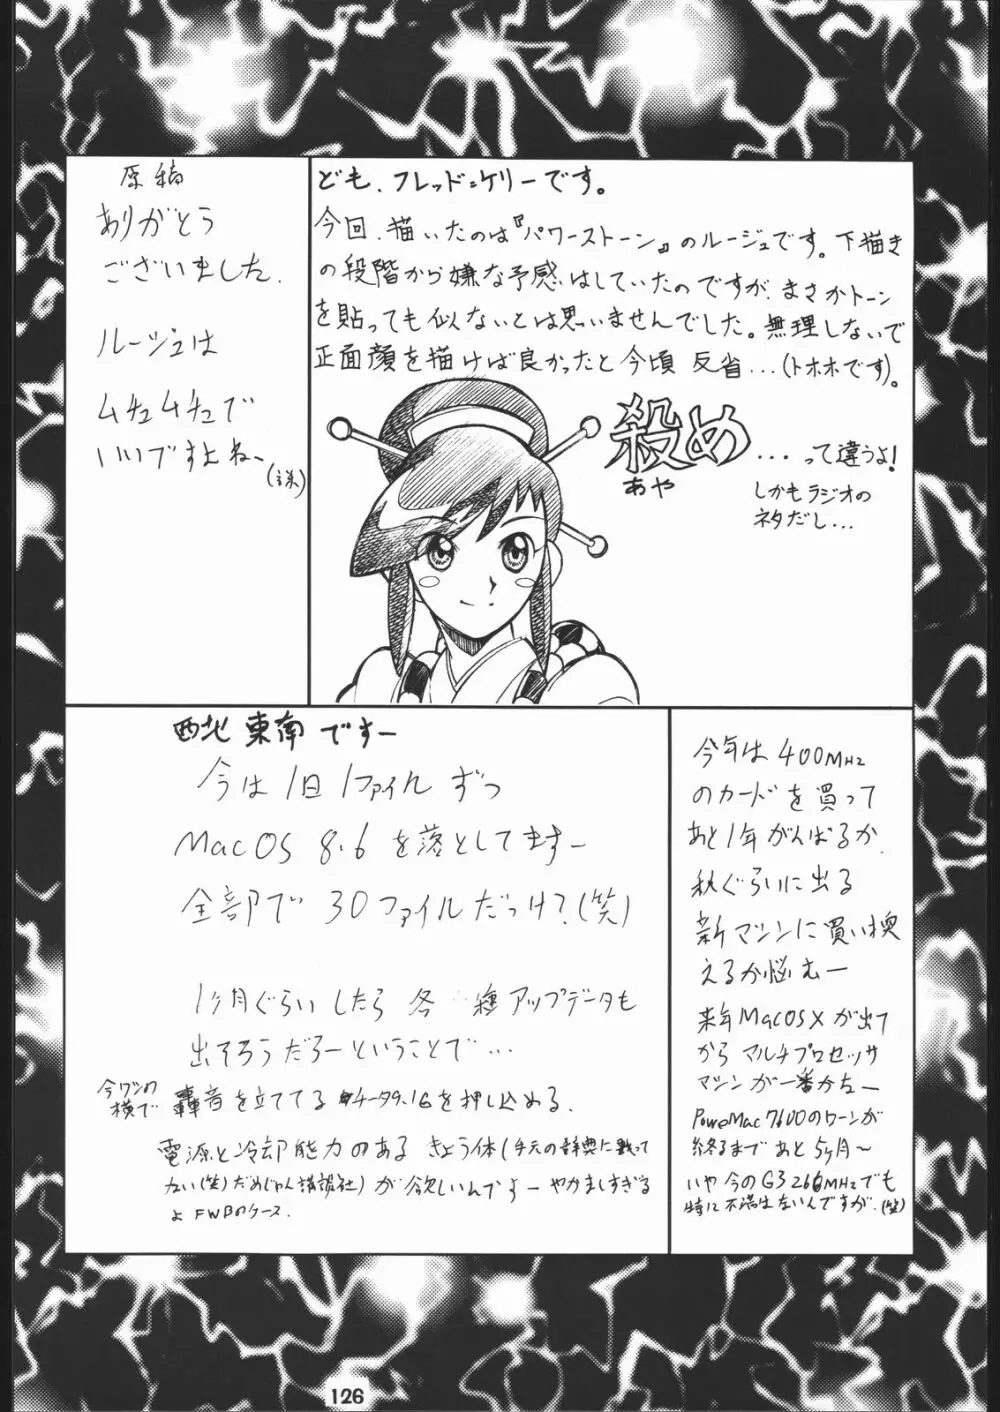 原稿
ありがとう
ございました.
ルージュは
ムチュムチュで
いいですよねー
ども、フレッド=ケリーです。
今回、描いたのは『パワーストーン』のルージュです。下描き
の段階から嫌な予感はしていたのですが、まさかトーン
を貼っても似ないとは思いませんでした。無理しないで
正面顔を描けば良かったと今頃反省...(トホホです)。
殺め
あや
...って違うよ!
しかもラジオの
ネタだし...
西北東南ですー
今は1日1ファイルずつ
MacOS 8.6を落としてますー
全部で30ファイルだっけ?(笑)
1ヶ月ぐらいしたら各種アップデータも
出そろうだろーということで...
今ワシの
横で
轟音を立ててるチータ9.1Gを押し込める.
電源と冷却能力のあるきょう体(手元の辞典に載って
ない(笑)だめじゃん講談社)が欲しいんですよーやかましすぎる
よFWBのケース.
今年は400MHz
のカードを買って
あと1年がんばるか.
秋ぐらいに出る
新マシンに買い換
えるか悩むー
来年MacOSXが出て
から マルチプロセッサ
マシンが一番かなー
PowerMac7600のローンが
終るまであと5ヶ月〜
いや今のG3 266MHzでも
特に不満はないんですが.(笑)
126